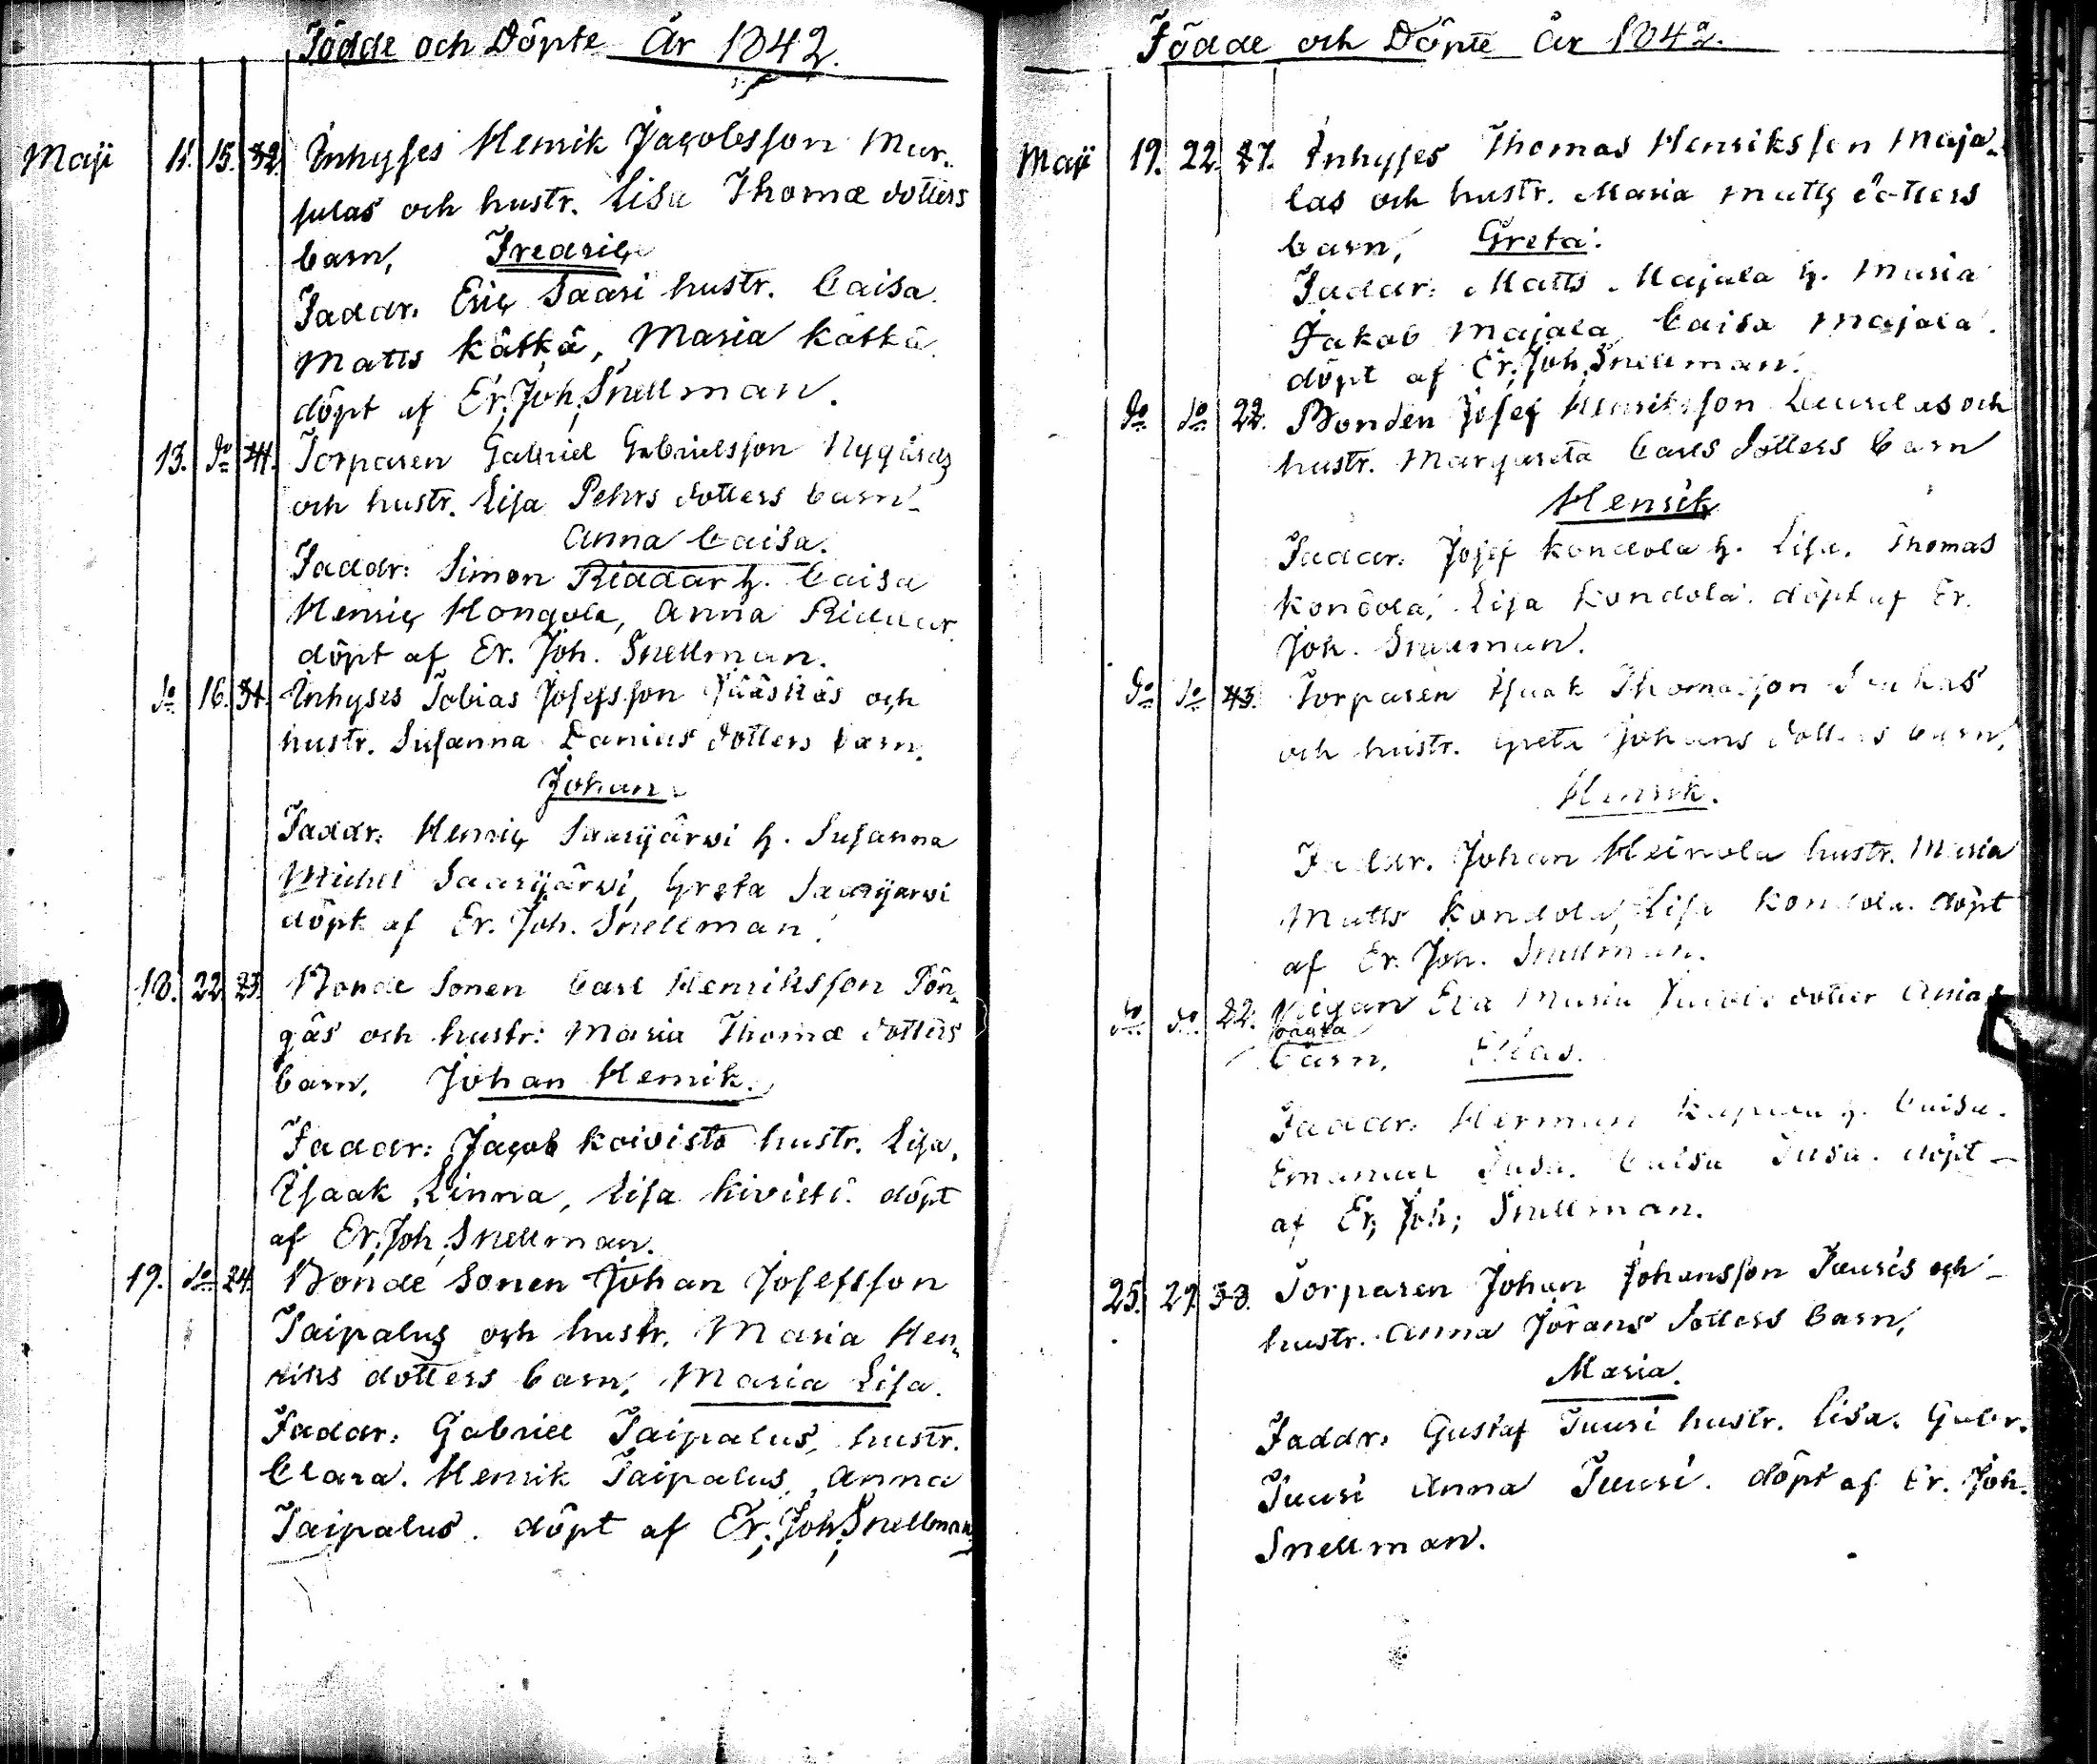 Födde och Döpte År 1842.
Maji 11. 15. 32. Inhyses Henrik Jacobsson Mur-
sulas och hustr. Lisa Thomæ dotters
barn, Fredric
Faddr. Eric Saari hustr. Caisa.
Matts Kätkä, Maria Kätkä.
döpt af Er; Joh; Snellman.
13. do 41. Torparen Gabriel Gabrielsson Nygårds
och hustr. Lisa Pehrs dotters barn
Anna Caisa.
Faddr: Simon Riddar h. Caisa
Henric Hongola, Anna Riddar.
döpt af Er. Joh. Snellman.
do 16. 31. Inhyses Tobias Josefsson Jääskäs och
hustr. Susanna Daniels dotters barn.
Johan.
Faddr: Henric Saarijärwi h. Susanna
Michel Saarijärwi, Greta Saarijärwi
döpt af Er. Joh. Snellman.
18. 22. 23. Bonde Sonen Carl Henriksson Pön-
gäs och hustr: Maria Thomæ dotters
barn, Johan Henrik.
Faddr: Jacob Koivisto hustr. Lisa.
Isaak Linna, Lisa Kivistö. döpt
af Er; Joh; Snellman.
19. do 24. Bonde Sonen Johan Josefsson
Taipalus och hustr. Maria Hen-
riks dotters barn, Maria Lisa.
Faddr: Gabriel Taipalus, hustr.
Clara. Henrik Taipalus, Anna
Taipalus. döpt af Er; Joh; Snellman
Födde och Döpte År 1842.
Maji 19. 22. 27. Inhyses Thomas Henriksson Maja-
las och hustr. Maria Matts dotters
barn, Greta.
Faddr: Matts Majala h. Maria
Jakob Majala, Caisa Majala.
döpt af Er; Joh; Snellman.
do do 22. Bonden Josef Henriksson och
hustr. Margareta Carls dotters barn
Henrik
Faddr: Josef Kondola h. Lisa. Thomas
Kondola, Lisa Kondola. döpt af Er.
Joh. Snellman.
do do 43. Torparen Isaak Thomasson
och hustr. Greta Johans dotters barn,
Henrik.
Faddr. Johan Heinola hustr. Maria
Matts Kondola, Lisa Kondola. döpt
af Er. Joh. Snellman.
do do 22. Pigan Eva Maria dotter
oägta
barn, Elias.
Faddr: Herman h. Caisa.
Emanuel Caisa döpt
af Er; Joh; Snellman.
25. 29. 38. Torparen Johan Johansson Juusis och
hustr. Anna Jörans dotters barn,
Maria.
Faddr: Gustaf Juusi hustr. Lisa. Gabr.
Juusi Anna Juusi. döpt af Er. Joh.
Snellman.